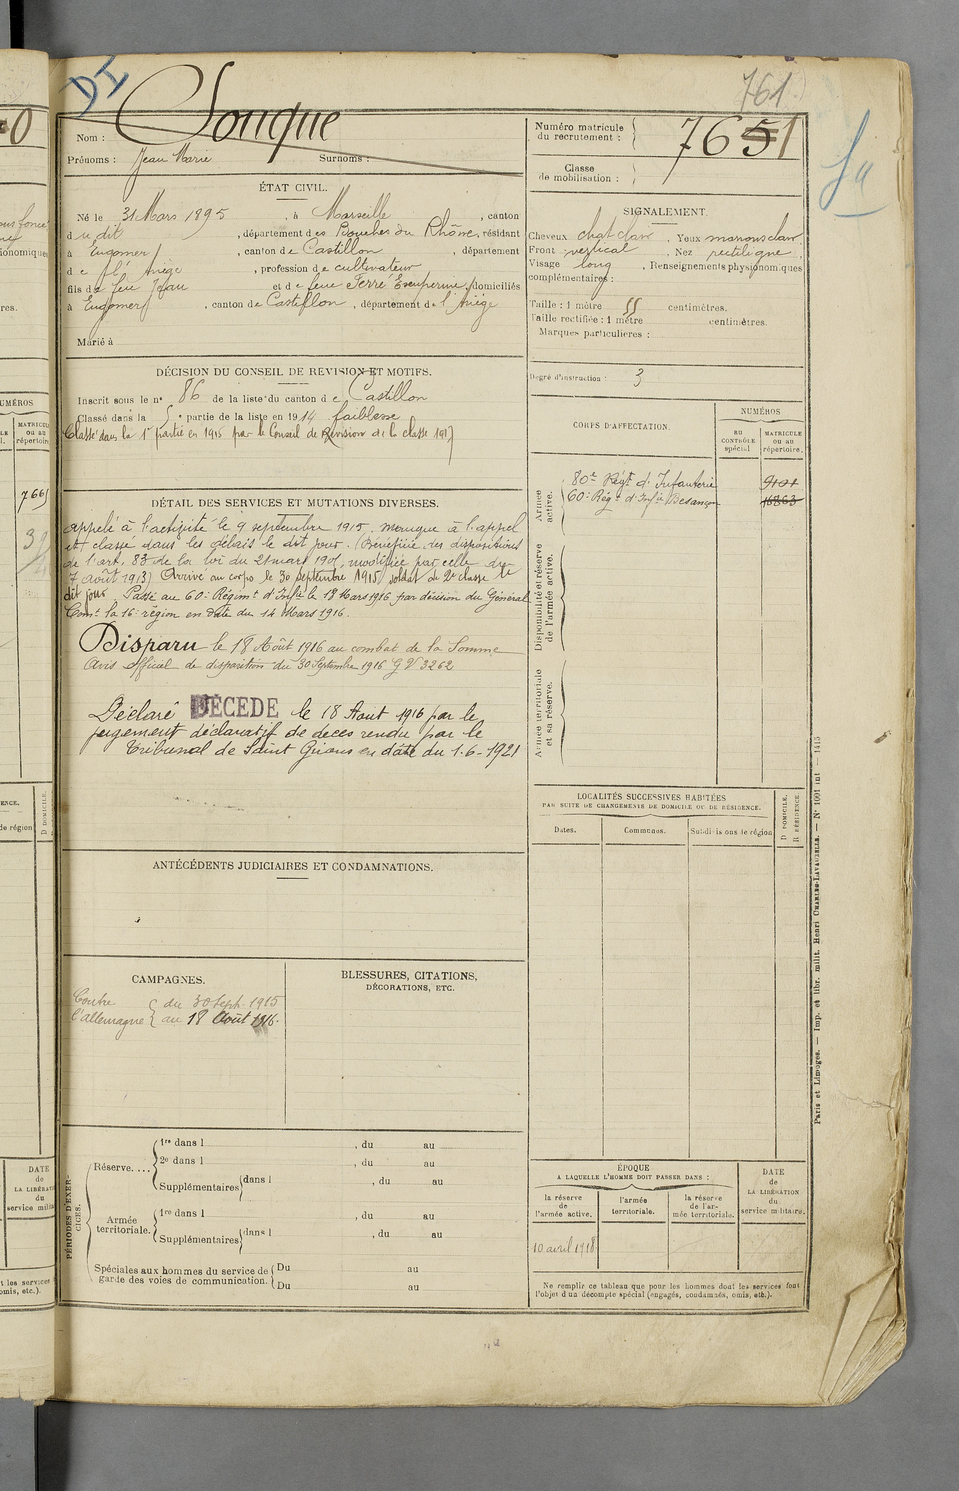 DI
761
Nom : Souque
Prénoms : Jean Marie Surnoms :
Numéro matricule
du recrutement : 7651
Classe
de mobilisation :
ÉTAT CIVIL.
Né le 31 Mars 1895, à Marseille, canton
dudit, département des Bouches du Rhône, résidant
à Engomer, canton de Castillon, département
de l'Ariège, profession de cultivateur
fils de feu Jean et de feue Ferré Exuperine, domiciliés
à Engomer, canton de Castillon, département de l'Ariège
Marié à
SIGNALEMENT.
Cheveux chat clair, Yeux marrons clair,
Front vertical, Nez rectiligne,
Visage long, Renseignements physionomiques
complémentaires :
Taille : 1 mètre 55 centimètres.
Taille rectifiée : 1 mètre centimètres.
Marques particulières :
Degré d'instruction : 3
DÉCISION DU CONSEIL DE REVISION ET MOTIFS.
Inscrit sous le n° 86 de la liste du canton de Castillon
Classé dans la 5e partie de la liste en 1914 faiblesse
Classé dans la 1e partie en 1915 par le Conseil de Révision de la classe 1917
DÉTAIL DES SERVICES ET MUTATIONS DIVERSES.
Appelé à l'activité le 9 septembre 1915. manque à l'appel
et classé dans les délais le dit jour. (Bénéficie des dispositions
de l'art. 83 de la loi du 21 mars 1905, modifiée par celle du
7 août 1913) Arrivé au corps le 30 septembre 1915, soldat de 2e classe le
dit jour. Passé au 60e Régimt d'Infie le 18 Mars 1916 par décision du Général
Comt la 16e région en date du 14 Mars 1916.
Disparu le 18 Août 1916 au combat de la Somme
Avis officiel de disparition du 30 Septembre 1916 GV 3262
Déclaré DÉCÉDÉ le 18 Aout 1916 par le
jugement déclaratif de décès rendu par le
Tribunal de Saint Girons en date du 1-6-1921
CORPS D'AFFECTATION.
NUMÉROS
au
CONTRÔLE
spécial.
MATRICULE
ou au
répertoire.
Armée
active.
80e Régt d'Infanterie 9101
60e Régt d'Infie Besançon 16863
Disponibilité et réserve
de l'armée active.
Armée territoriale
et sa réserve.
LOCALITÉS SUCCESSIVES HABITÉES
PAR SUITE DE CHANGEMENTS DE DOMICILE OU DE RÉSIDENCE.
Dates. Communes. Subdivisions de région
D DOMICILE.
R RÉSIDENCE.
ANTÉCÉDENTS JUDICIAIRES ET CONDAMNATIONS.
CAMPAGNES.
Contre du 30 Sept. 1915
l'allemagne au 18 Août 1916.
BLESSURES, CITATIONS,
DÉCORATIONS, ETC.
PÉRIODES D'EXERCICES.
Réserve....
1re dans l , du au
2e dans l , du au
Supplémentaires dans l , du au
Armée
territoriale.
1re dans l , du au
Supplémentaires dans l , du au
Spéciales aux hommes du service de Du au
garde des voies de communication. Du au
ÉPOQUE
A LAQUELLE L'HOMME DOIT PASSER DANS :
la réserve
de
l'armée active.
l'armée
territoriale.
la réserve
de l'ar-
mée territoriale.
DATE
de
LA LIBÉRATION
du
service militaire.
10 avril 1918
Ne remplir ce tableau que pour les hommes dont les services font
l'objet d'un décompte spécial (engagés, condamnés, omis, etc.).
Paris et Limoges. — Imp. et libr. milit. Henri CHARLES-LAVAUZELLE. — N° 1001 int — 1415